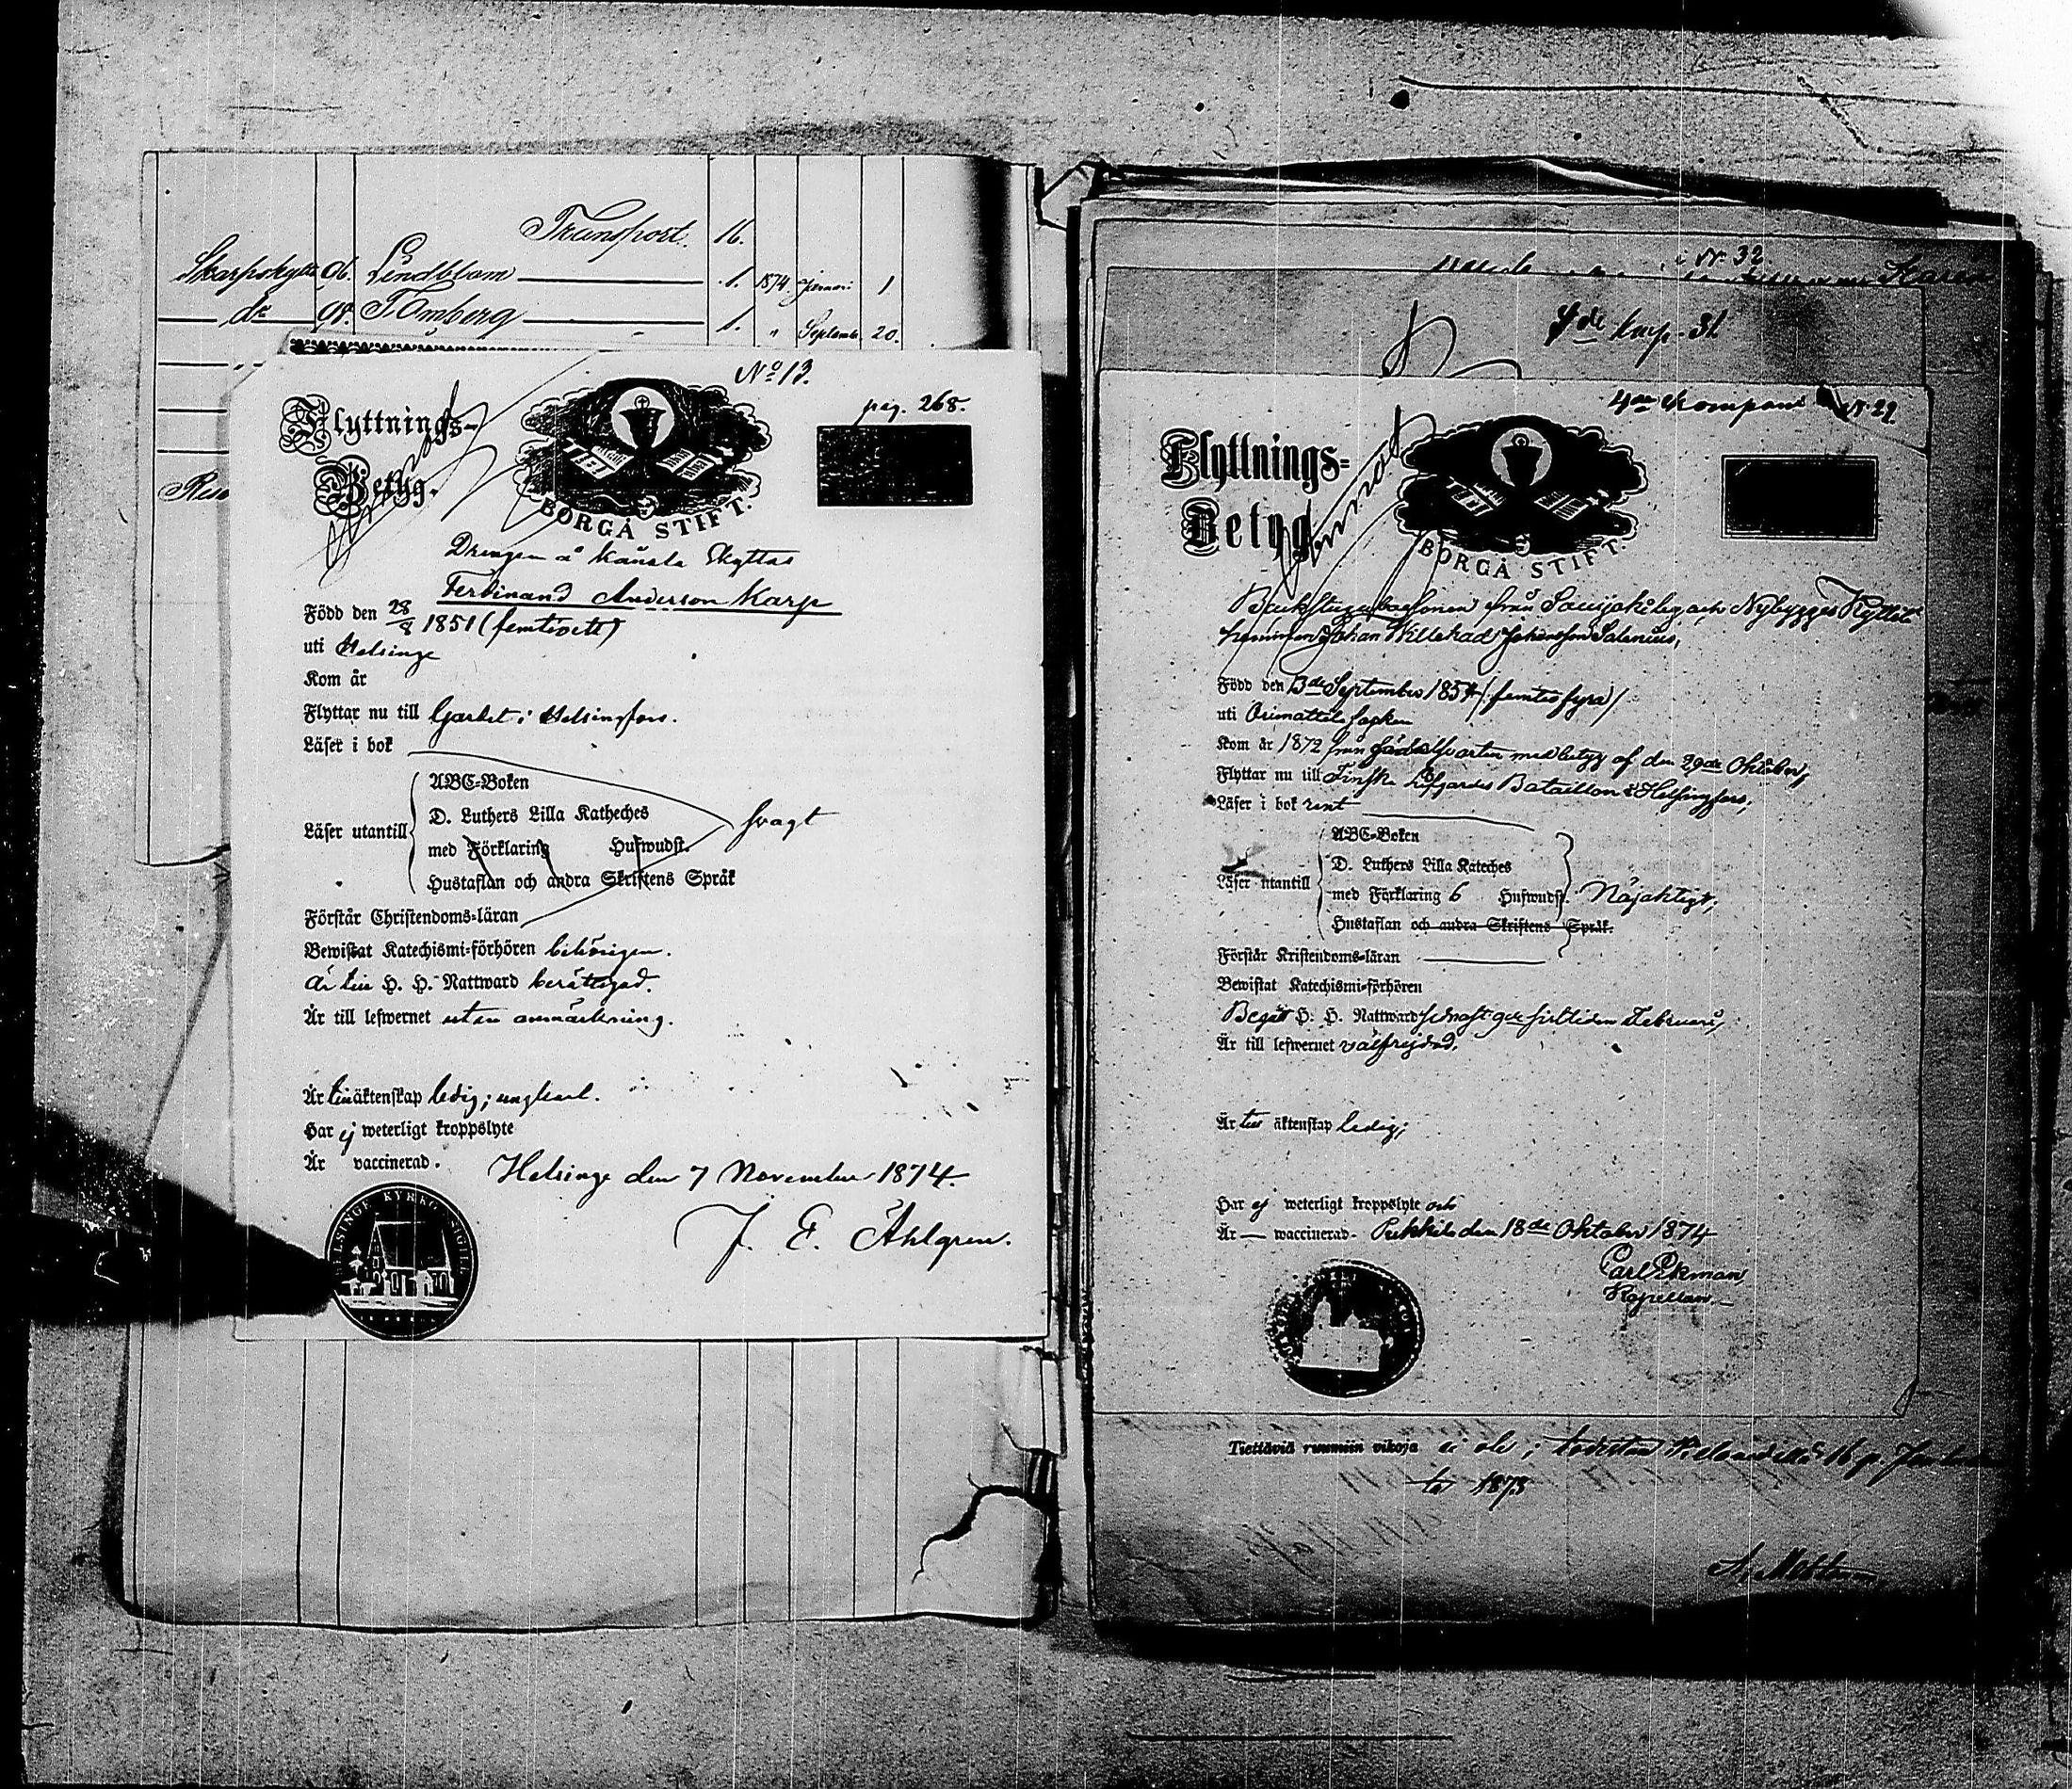 Transport. 16.
Skarpskytte 96. Lendblom 1. 1874. Januari 1
do 98. T Omberg 1. " Septembr 20.
No 13.
pag. 268.
Flyttnings-
Betyg.
BORGÅ STIFT.
Drengen å Kånsla Skyttas
Ferdinand Anderson Karp
Född den 28/8 1851 (femtioett)
uti Helsinge
Kom år
Flyttar nu till Gardet i Helsingfors.
Läser i bok
ABC-Boken
D. Luthers Lilla Katheches
Läser utantill
med Förklaring Hufwudst.
svagt
Hustaflan och andra Skriftens Språk
Förstår Christendoms-läran
Bewistat Katechismi-förhören behörigen.
Är till H. H. Nattward berättigad.
Är till lefwernet utan anmärkning.
Är till äktenskap ledig; ungkarl.
Har ej weterligt kroppslyte
Är vaccinerad.
Helsinge den 7 November 1874.
J. E. Åhlgren.
HELSINGE KYRKO SIGILL
No 32
4de komp. 31
4de Kompani No 29.
Flyttnings-
Betyg
BORGÅ STIFT.
Johan Willehad Johansson Salenius,
Född den 13de September 1854 /femtiofyra/
uti Orimattila socken
Kom år 1872 från med betyg af den 29de Oktober,
Flyttar nu till Finska Lifgardes Bataillon i Helsingfors,
Läser i bok rent
ABC-Boken
D. Luthers Lilla Kateches
Läser utantill
med Förklaring 6 Hufwudst. Nöjaktigt,
Hustaflan och andra Skriftens Språk.
Förstår Kristendoms-läran
Bewistat Katechismi-förhören
Begått H. H. Nattward senast Februari,
Är till lefwernet välfrejdad,
Är till äktenskap ledig;
Har ej weterligt kroppslyte och
Är waccinerad. Pukkila den 18de Oktober 1874
Carl Ekman
Kapellan.
Tiettäviä ruumiin vikoja ei ole; todistan 16 p.
ta 1873